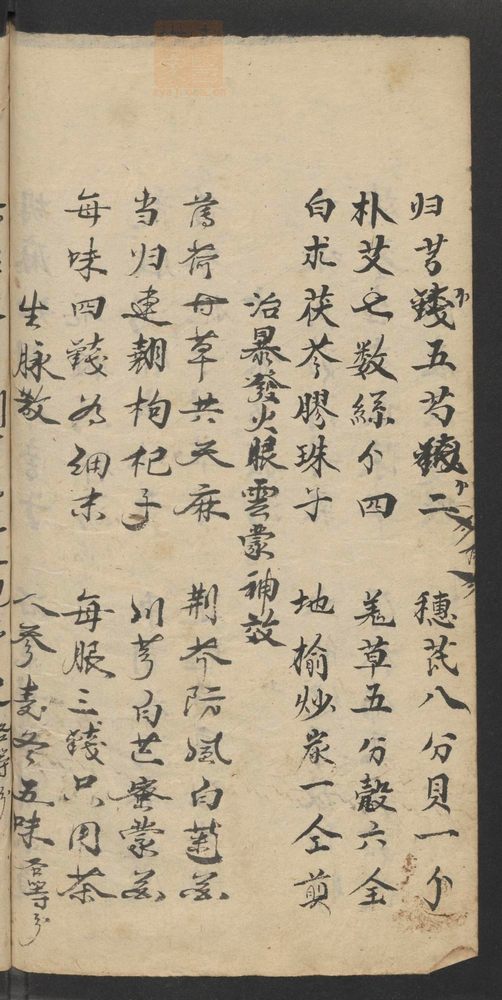 归芎錢五芍錢二 穗芪八分貝一个
朴艾七数絲个四 羌草五分殼六全
白朮茯苓膠珠子 地榆炒炭一仝煎
治暴發火眼雲蒙神效
薄荷甘草共天麻 荆芥防風白菊花
当归連翹枸杞子 川芎白芷密蒙花
每味四錢为細末 每服三錢只用茶
生脉散 人參麦冬五味各等分